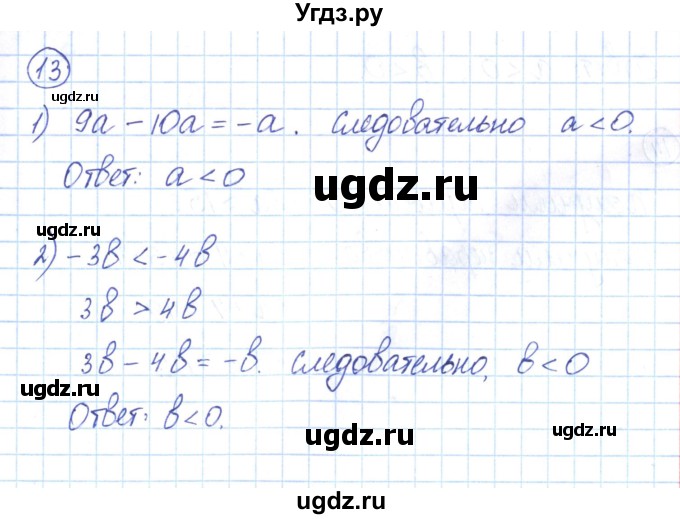 Угдз.ру
13
ugdz.ru
1) 9a - 10a = -a. Следовательно a < 0.
Ответ: a < 0
ugdz.ru
ugdz.ru
ugdz.ru
2) -3в < -4в
3в > 4в
3в - 4в = -в. Следовательно, в < 0
ugdz.ru
Ответ: в < 0.
ugdz.ru
ugdz.ru
ugdz.ru
ugdz.ru